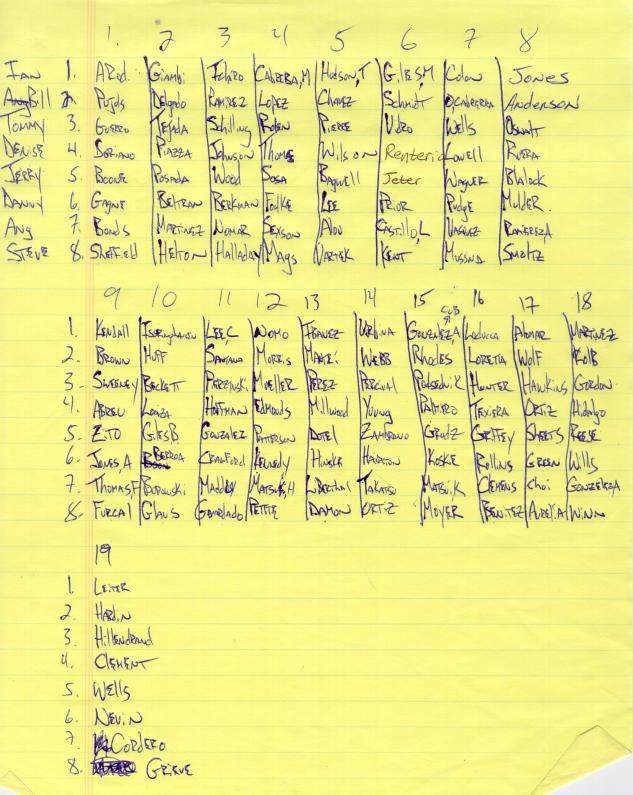 1. 2 3 4 5 6 7 8
Ian 1. ARod. Giambi Ichiro CABRERA, M Hudson, T Giles M Colon Jones
Bill 2. Pujols Delgado Ramirez Lopez Chavez Schmidt O Cabrera Anderson
Tommy 3. Guerro Tejada Schilling Rolen Pierre Vidro Wells Oswalt
Denise 4. Soriano Piazza Johnson Thome Wilson Renteria Lowell Rivera
Jerry 5. Boone Posada Wood Sosa Bagwell Jeter Wagner Blalock
Danny 6. Gagne Beltran Berkman Foulke Lee Prior Pudge Mulder.
Ang 7. Bonds Martinez Nomar Sexson Alou Castillo, L Vazquez Ramirez A
Steve 8. Sheffield Helton Halladay Mags Vartek Kent Mussina Smoltz
9 10 11 12 13 14 15 CUB 16 17 18
1. Kendall Isringhausen Lee, C Nomo Ibanez Urbina Gonzalez A Loduca Alomar Martinez
2. Brown Huff Santana Morris Webb Rhodes Loretta Wolf Kolb
3- Sweeney Beckett Pierzinski Mueller Perez Percival Podsednik Hunter Hawkins Gordon
4. Abreu Loaiza Hoffman Edmonds Millwood Young Palmiero Texiera Ortiz Hidalgo
5- Zito Giles B Gonzalez Patterson Dotel Zambrano Grudz Griffey Sheets Reese
6- Jones, A Berroa Crawford Kennedy Hinske Hairston Koske Rollins Green Wills
7. Thomas, F Borowski Maddux Matsui, H Liberthal Takatsu Matsui, K Clemens Choi Gonzelez A
8- Furcal Glaus Petite Damon Ortiz Moyer Benitez Aurilia Winn
19
1. Leiter
2. Hardin
3. Hillendrand
4. Clement
5. Wells
6. Nevin
7. Cordero
8. Grieve